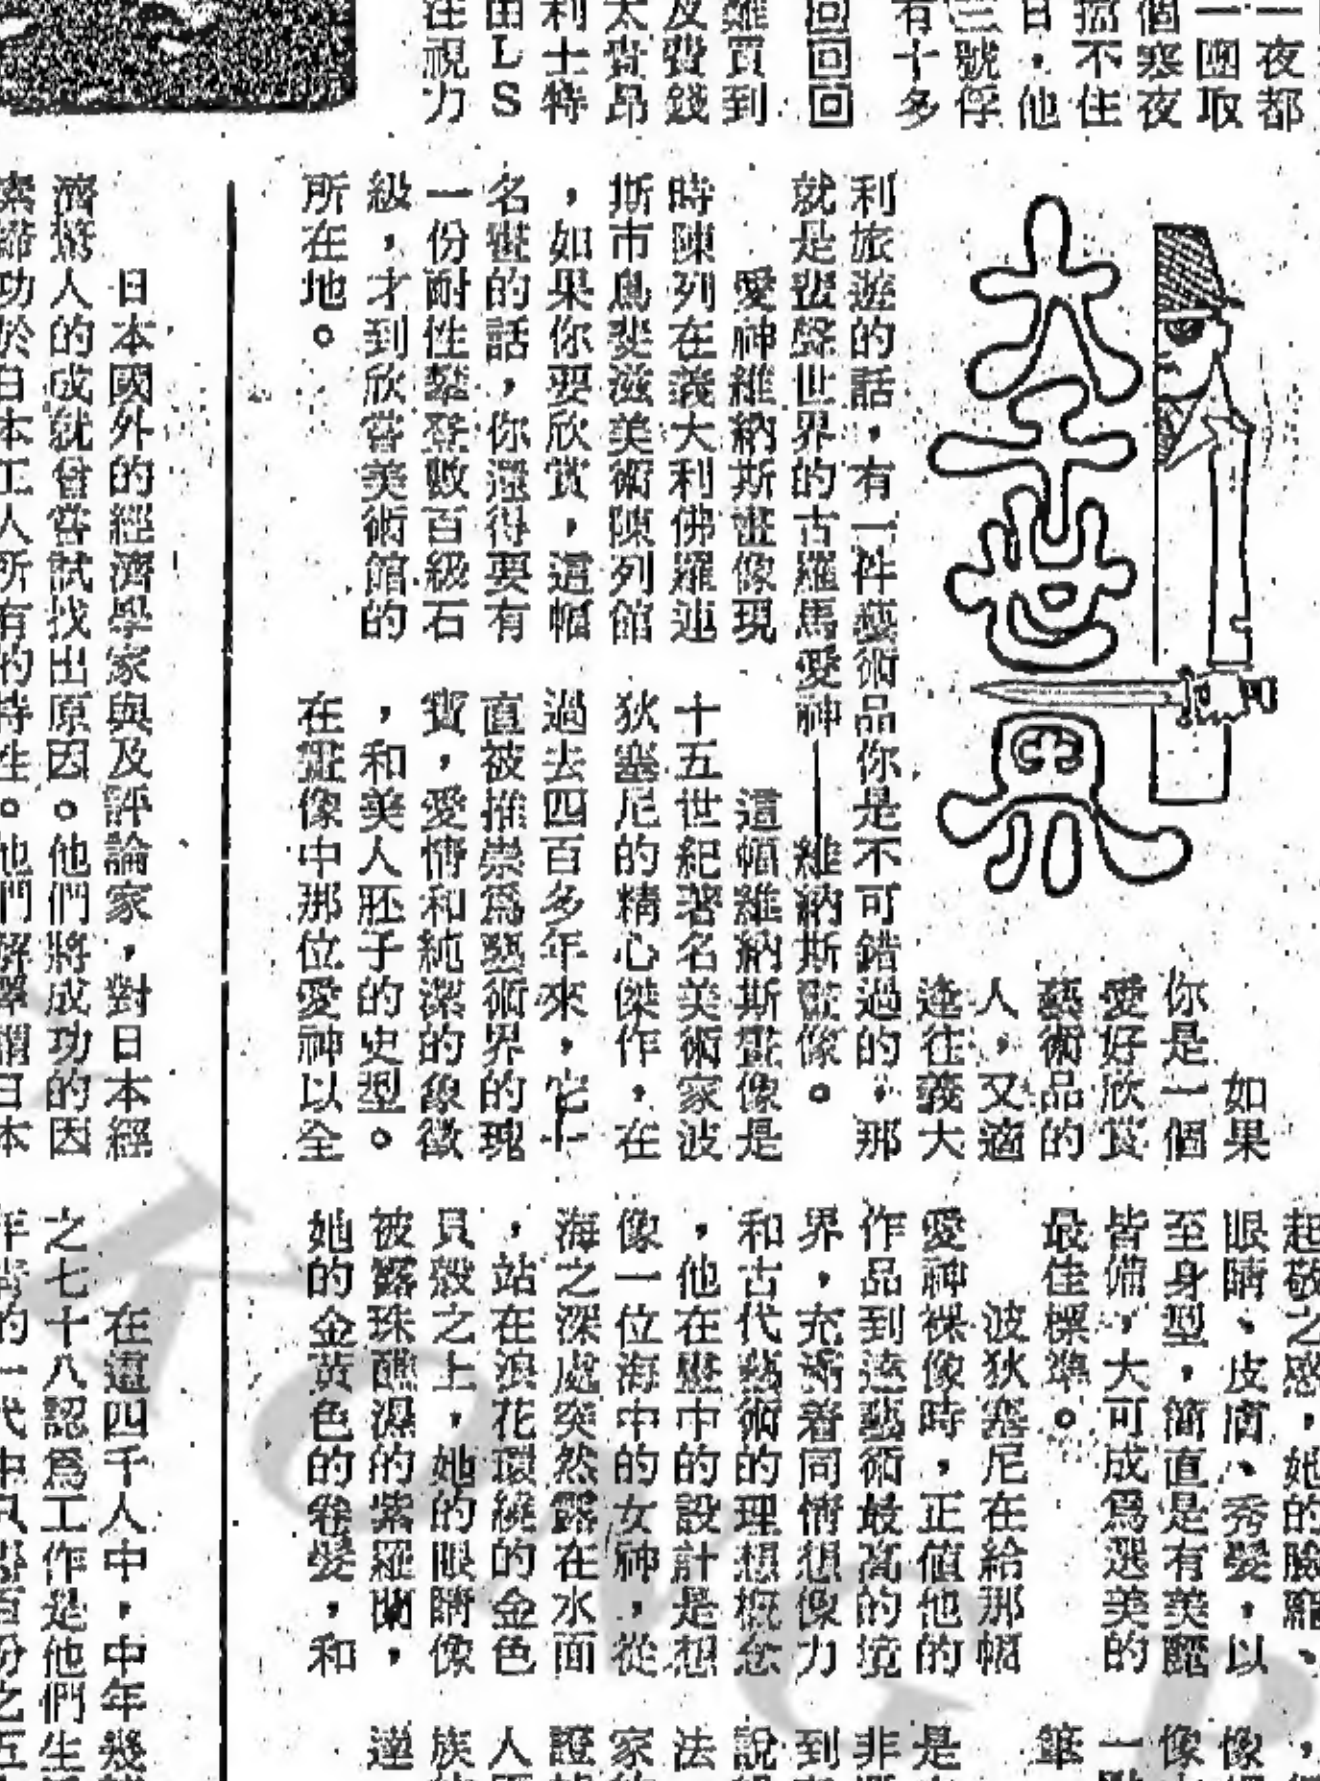 一夜都
一團取
個寒夜
不住
日，他
三號俘
有十多
回回回
羅買到
及費錢
太貴昂
利士特
由LS
注視力
大千世界
如果
你是一個
愛好欣賞
藝術品的
人，又適
逢往義大
利旅遊的話，有一件藝術品你是不可錯過的，那
就是蜚聲世界的古羅馬愛神——維納斯畫像。
愛神維納斯畫像現
時陳列在義大利佛羅連
斯市烏斐滋美術陳列館
，如果你要欣賞，這幅
名畫的話，你還得要有
一份耐性攀登數百級石
級，才到欣賞美術館的
所在地。
這幅維納斯畫像是
十五世紀著名美術家波
狄塞尼的精心傑作，在
過去四百多年來，它一
直被推崇爲藝術界的瑰
寶，愛情和純潔的象徵
，和美人胚子的史型。
在畫像中那位愛神以全
起敬之感，她的臉龐、
眼睛、皮膚、秀髮，以
至身型，簡直是有美麗
皆備，大可成爲選美的
最佳標準。
波狄塞尼在給那幅
愛神裸像時，正值他的
作品到達藝術最高的境
界，充滿着同情想像力
和古代藝術的理想概念
，他在畫中的設計是想
像一位海中的女神，從
海之深處突然露在水面
，站在浪花環繞的金色
貝殼之上，她的眼睛像
被露珠醮濕的紫羅蘭，
她的金黃色的卷髮，和
像
像
一
筆
是
非
到
說
法
家
證
人
族
達
日本國外的經濟學家與及評論家，對日本經
濟驚人的成就曾嘗試找出原因。他們將成功的因
素歸功於日本工人所有的特性。他們解釋謂日本
在這四千人中，中年幾
之七十八認爲工作是他們生
年青的一代中只得百份之五
KONG P